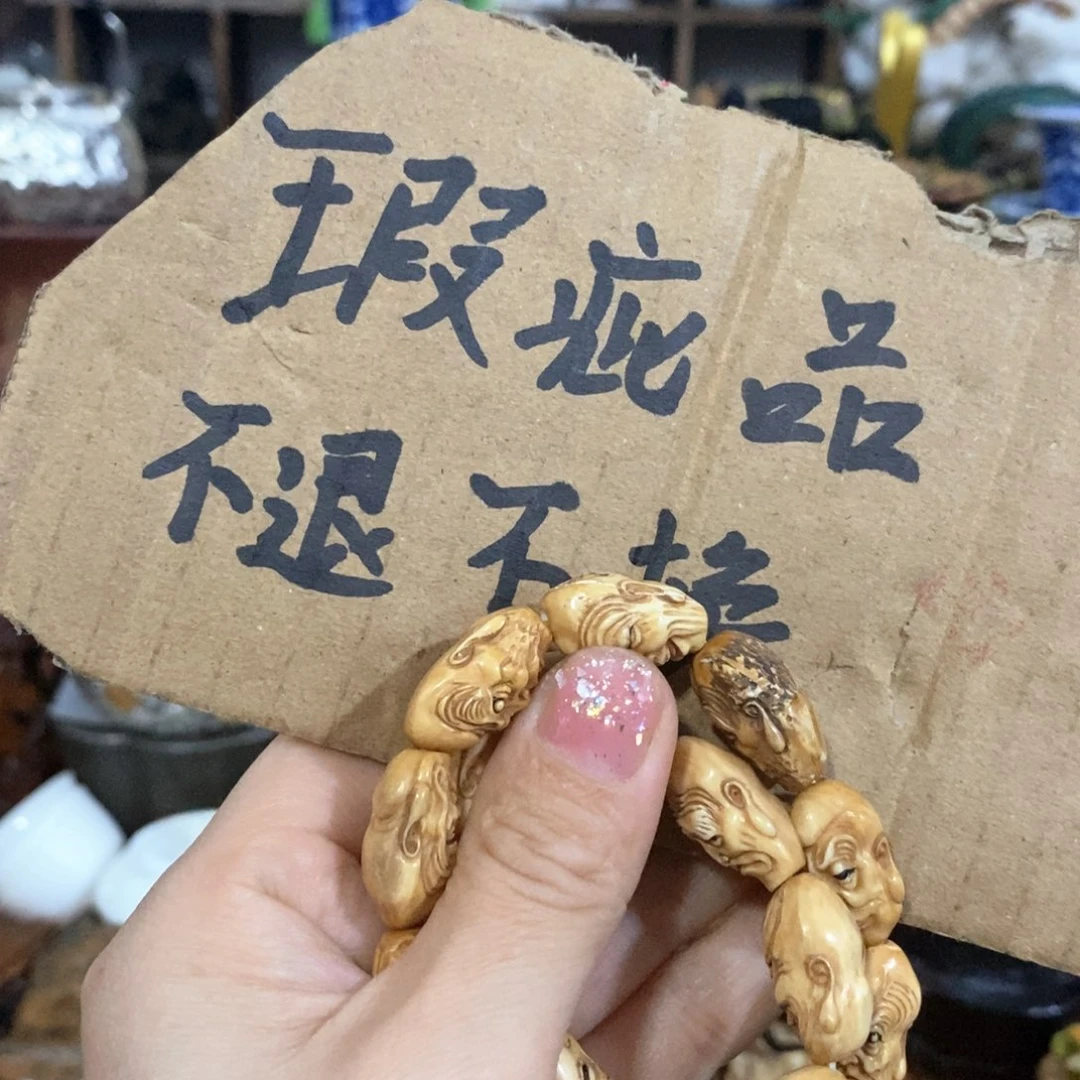 瑕疵品
不退不换